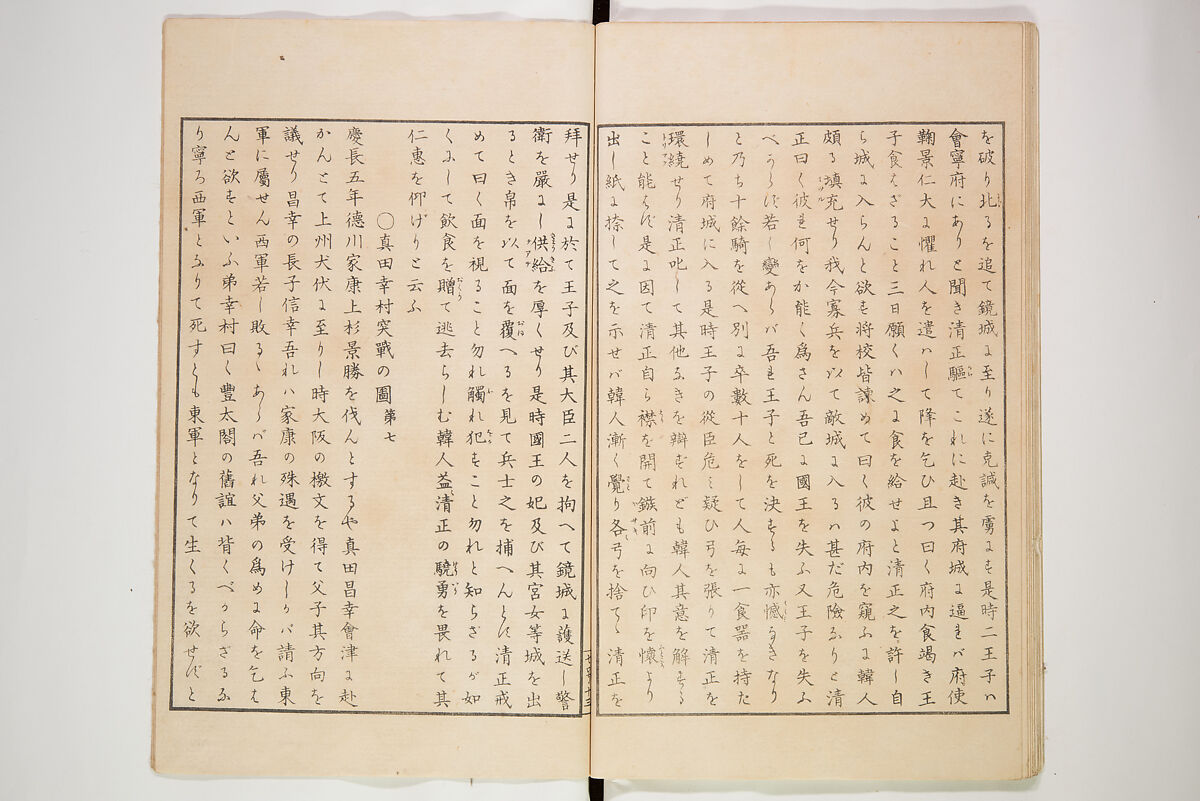 を破り北るを追て鏡城に至り遂に克誠を虜にす是時二王子ハ
會寧府にありと聞き清正驅てこれに赴き其府城に逼れバ府使
鞠景仁大に懼れ人を遣ハして降を乞ひ且つ曰く府内食竭き王
子食はざること三日願くハ之に食を給せよと清正之を許し自
ら城に入らんと欲す将校皆諫めて曰く彼の府内を窺ふに韓人
頗る填充せり我今寡兵を以て敵城に入るハ甚だ危險なりと清
正曰く彼れ何をか能く爲さん吾已に國王を失ふ又王子を失ふ
べからず若し變あらバ吾れ王子と死を決するも亦憾なきなり
と乃ち十餘騎を從へ別に卒數十人をして人毎に一食器を持た
しめて府城に入る是時王子の從臣危ミ疑ひ弓を張りて清正を
環繞せり清正叱して其他なきを辯ずれども韓人其意を解する
こと能はず是に因て清正自ら襟を開て鏃前に向ひ印を懷より
出し紙に捺して之を示せバ韓人漸く覺り各弓を捨てゝ清正を
拜せり是に於て王子及び其大臣二人を拘へて鏡城に護送し警
衛を嚴にし供給を厚くせり是時國王の妃及び其宮女等城を出
るとき帛を以て面を覆へるを見て兵士之を捕へんとす清正戒
めて曰く面を視ること勿れ觸れ犯すこと勿れと知らざるが如
くにして飲食を贈て逃去らしむ韓人益清正の驍勇を畏れて其
仁惠を仰げりと云ふ
〇真田幸村突戰の圖 第七
慶長五年德川家康上杉景勝を伐んとするや真田昌幸會津に赴
かんとて上州犬伏に至りし時大阪の檄文を得て父子其方向を
議せり昌幸の長子信幸吾れハ家康の殊遇を受けしかバ請ふ東
軍に屬せん西軍若し敗るゝあらバ吾れ父弟の爲めに命を乞は
んと欲すといふ弟幸村曰く豐太閤の舊誼ハ背くべからざるな
り寧ろ西軍となりて死すとも東軍となりて生くるを欲せずと